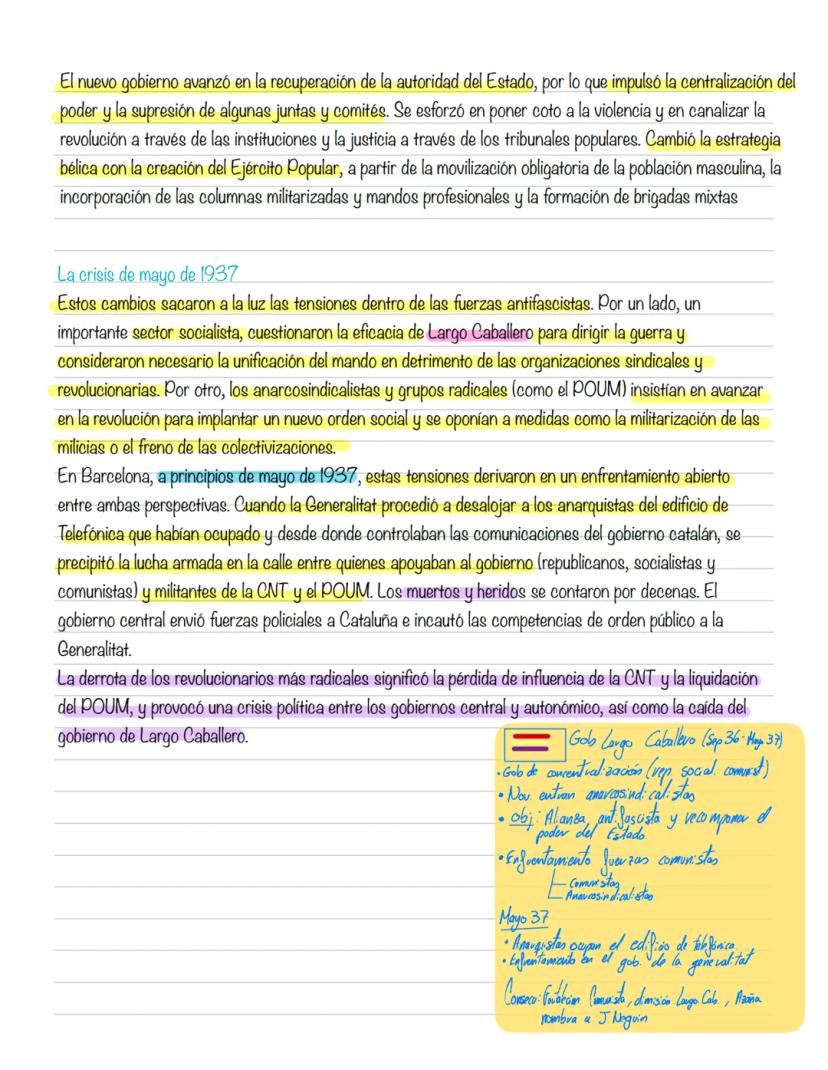 El nuevo gobierno avanzó en la recuperación de la autoridad del Estado, por lo que impulsó la centralización del
poder y la supresión de algunas juntas y comités. Se esforzó en poner coto a la violencia y en canalizar la
revolución a través de las instituciones y la justicia a través de los tribunales populares. Cambió la estrategia
bélica con la creación del Ejército Popular, a partir de la movilización obligatoria de la población masculina, la
incorporación de las columnas militarizadas y mandos profesionales y la formación de brigadas mixtas
La crisis de mayo de 1937
Estos cambios sacaron a la luz las tensiones dentro de las fuerzas antifascistas. Por un lado, un
importante sector socialista, cuestionaron la eficacia de Largo Caballero para dirigir la guerra y
consideraron necesario la unificación del mando en detrimento de las organizaciones sindicales y
revolucionarias. Por otro, los anarcosindicalistas y grupos radicales (como el POUM) insistían en avanzar
en la revolución para implantar un nuevo orden social y se oponían a medidas como la militarización de las
milicias o el freno de las colectivizaciones.
En Barcelona, a principios de mayo de 1937, estas tensiones derivaron en un enfrentamiento abierto
entre ambas perspectivas. Cuando la Generalitat procedió a desalojar a los anarquistas del edificio de
Telefónica que habían ocupado y desde donde controlaban las comunicaciones del gobierno catalán, se
precipitó la lucha armada en la calle entre quienes apoyaban al gobierno (republicanos, socialistas y
comunistas) y militantes de la CNT y el POUM. Los muertos y heridos se contaron por decenas. El
gobierno central envió fuerzas policiales a Cataluña e incautó las competencias de orden público a la
Generalitat.
La derrota de los revolucionarios más radicales significó la pérdida de influencia de la CNT y la liquidación
del POUM, y provocó una crisis política entre los gobiernos central y autonómico, así como la caída del
gobierno de Largo Caballero.
Gob Largo Caballero (Sep 36- May 37)
• Gob de concentralización (rep. social. comunist)
• Nov. entran anarcosindicalistas
• obj: Alianza antifascista y recomponer el
poder del Estado.
• Enfrentamiento fuerzas comunistas
Comunistas
Anarcosindicalistas
Mayo 37
• Anarquistas ocupan el edificio de telefónica.
• Enfrentamiento en el gob. de la generalitat
Consecu: comunista, dimisión Largo Cab., Azaña
nombra a J. Neguin